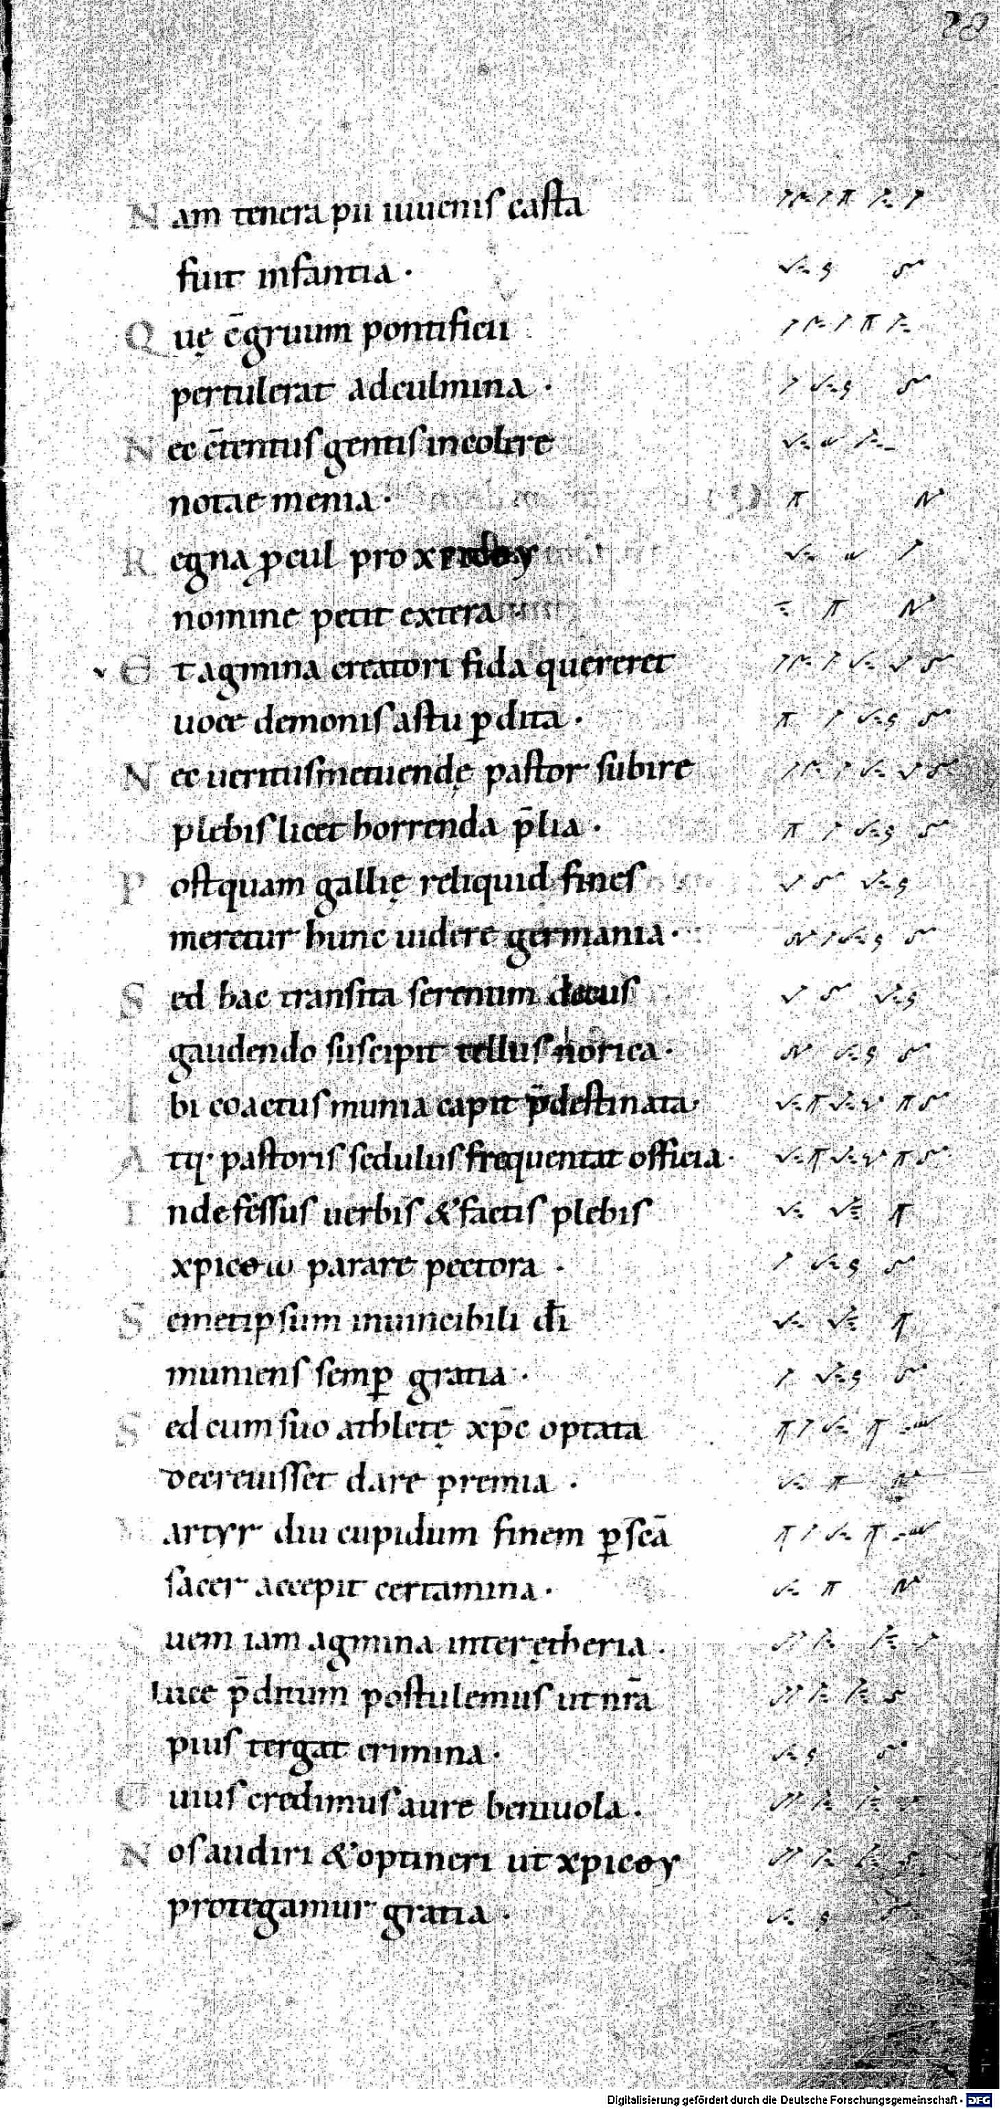 28
Nam tenera pii iuuenis casta
fuit infantia ·
Quę c̄gruum pontificii
pertulerat ad culmina ·
Nec c̄tentus gentis incolere
notae menia ·
Regna ꝓcul pro
nomine petit extera ·
Et agmina creatori fida quereret
uoce demonis astu ꝑdita ·
Nec ueritus metuendę pastor subire
plebis licet horrenda p̄lia ·
Postquam gallię reliquid fines
meretur hunc uidere germania ·
Sed hac transita serenum decus
gaudendo suscipit tellus norica ·
Ibi coactus munia capit p̄destinata ·
Atq; pastoris sedulus frequentat officia ·
Inde fessus uerbis & factis plebis
xpicoω parare pectora ·
Semetipsum inuincibili dī
muniens semꝑ gratia ·
Sed cum suo athletę xp̄c optata
decreuisset dare premia ·
Martyr diu cupidum finem ꝑ scā
sacer accepit certamina ·
Quem iam agmina inter ętheria ·
Luce p̄ditum postulemus ut nr̄a
pius tergat crimina ·
Cuius credimus aure beniuola ·
Nos audiri & optineri ut xpicoy
protegamur gratia ·
Digitalisierung gefördert durch die Deutsche Forschungsgemeinschaft - DFG